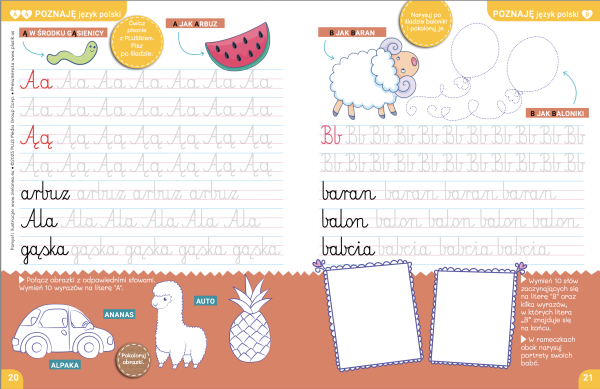 A Ą POZNAJĘ język polski
Ą W ŚRODKU GĄSIENICY
Ćwicz
pisanie
z PLUSikiem.
Pisz
po śladzie.
A JAK ARBUZ
Aa Aa Aa Aa Aa Aa Aa
Aa Aa Aa Aa Aa Aa Aa
Ąą Ąą Ąą Ąą Ąą Ąą Ąą
Ąą Ąą Ąą Ąą Ąą Ąą Ąą
arbuz arbuz arbuz arbuz
Ala Ala Ala Ala Ala Ala
gąska gąska gąska gąska gąska
Połącz obrazki z odpowiednimi słowami.
Wymień 10 wyrazów na literę "A".
ANANAS
AUTO
ALPAKA
Pokoloruj
obrazki.
20
POZNAJĘ język polski B
Narysuj po
śladzie baloniki
i pokoloruj je.
B JAK BARAN
B JAK BALONIKI
Bb Bb Bb Bb Bb Bb Bb Bb Bb Bb Bb
Bb Bb Bb Bb Bb Bb Bb Bb Bb Bb Bb
baran baran baran baran
balon balon balon balon balon
babcia babcia babcia babcia
Wymień 10 słów
zaczynających się
na literę "B" oraz
kilka wyrazów,
w których litera
„B" znajduje się
na końcu.
W rameczkach
obok narysuj
portrety swoich
babć.
21